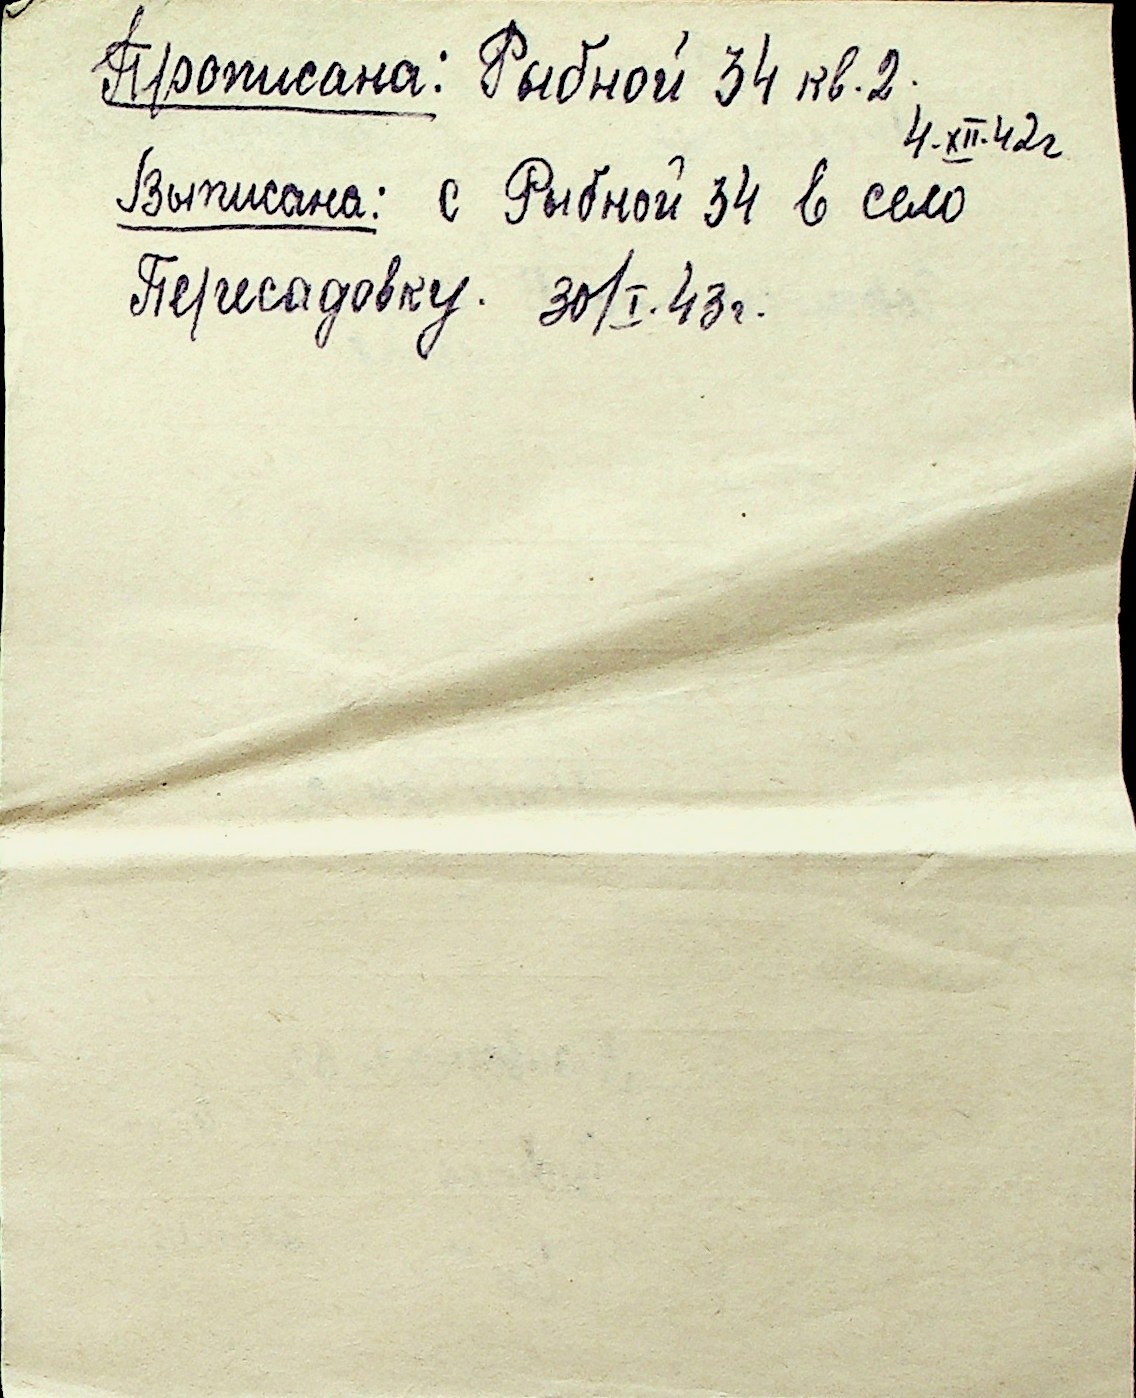 Прописана: Рыбной 34 кв. 2.
4.XII.42г
Выписана: с Рыбной 34 в село
Пересадовку. 30/I.43г.